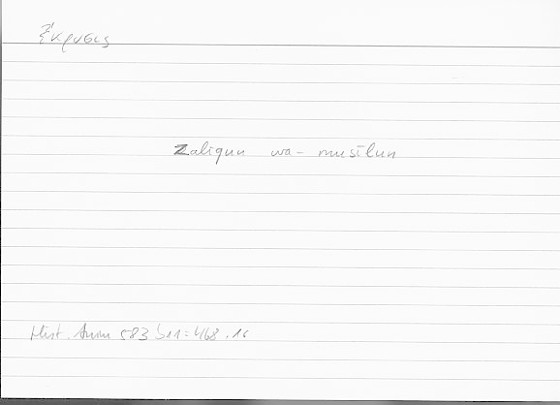 Ἔκρυσις
Zaliqun wa- musilun
Hist. Anim 583 b 21 : 468 . 16